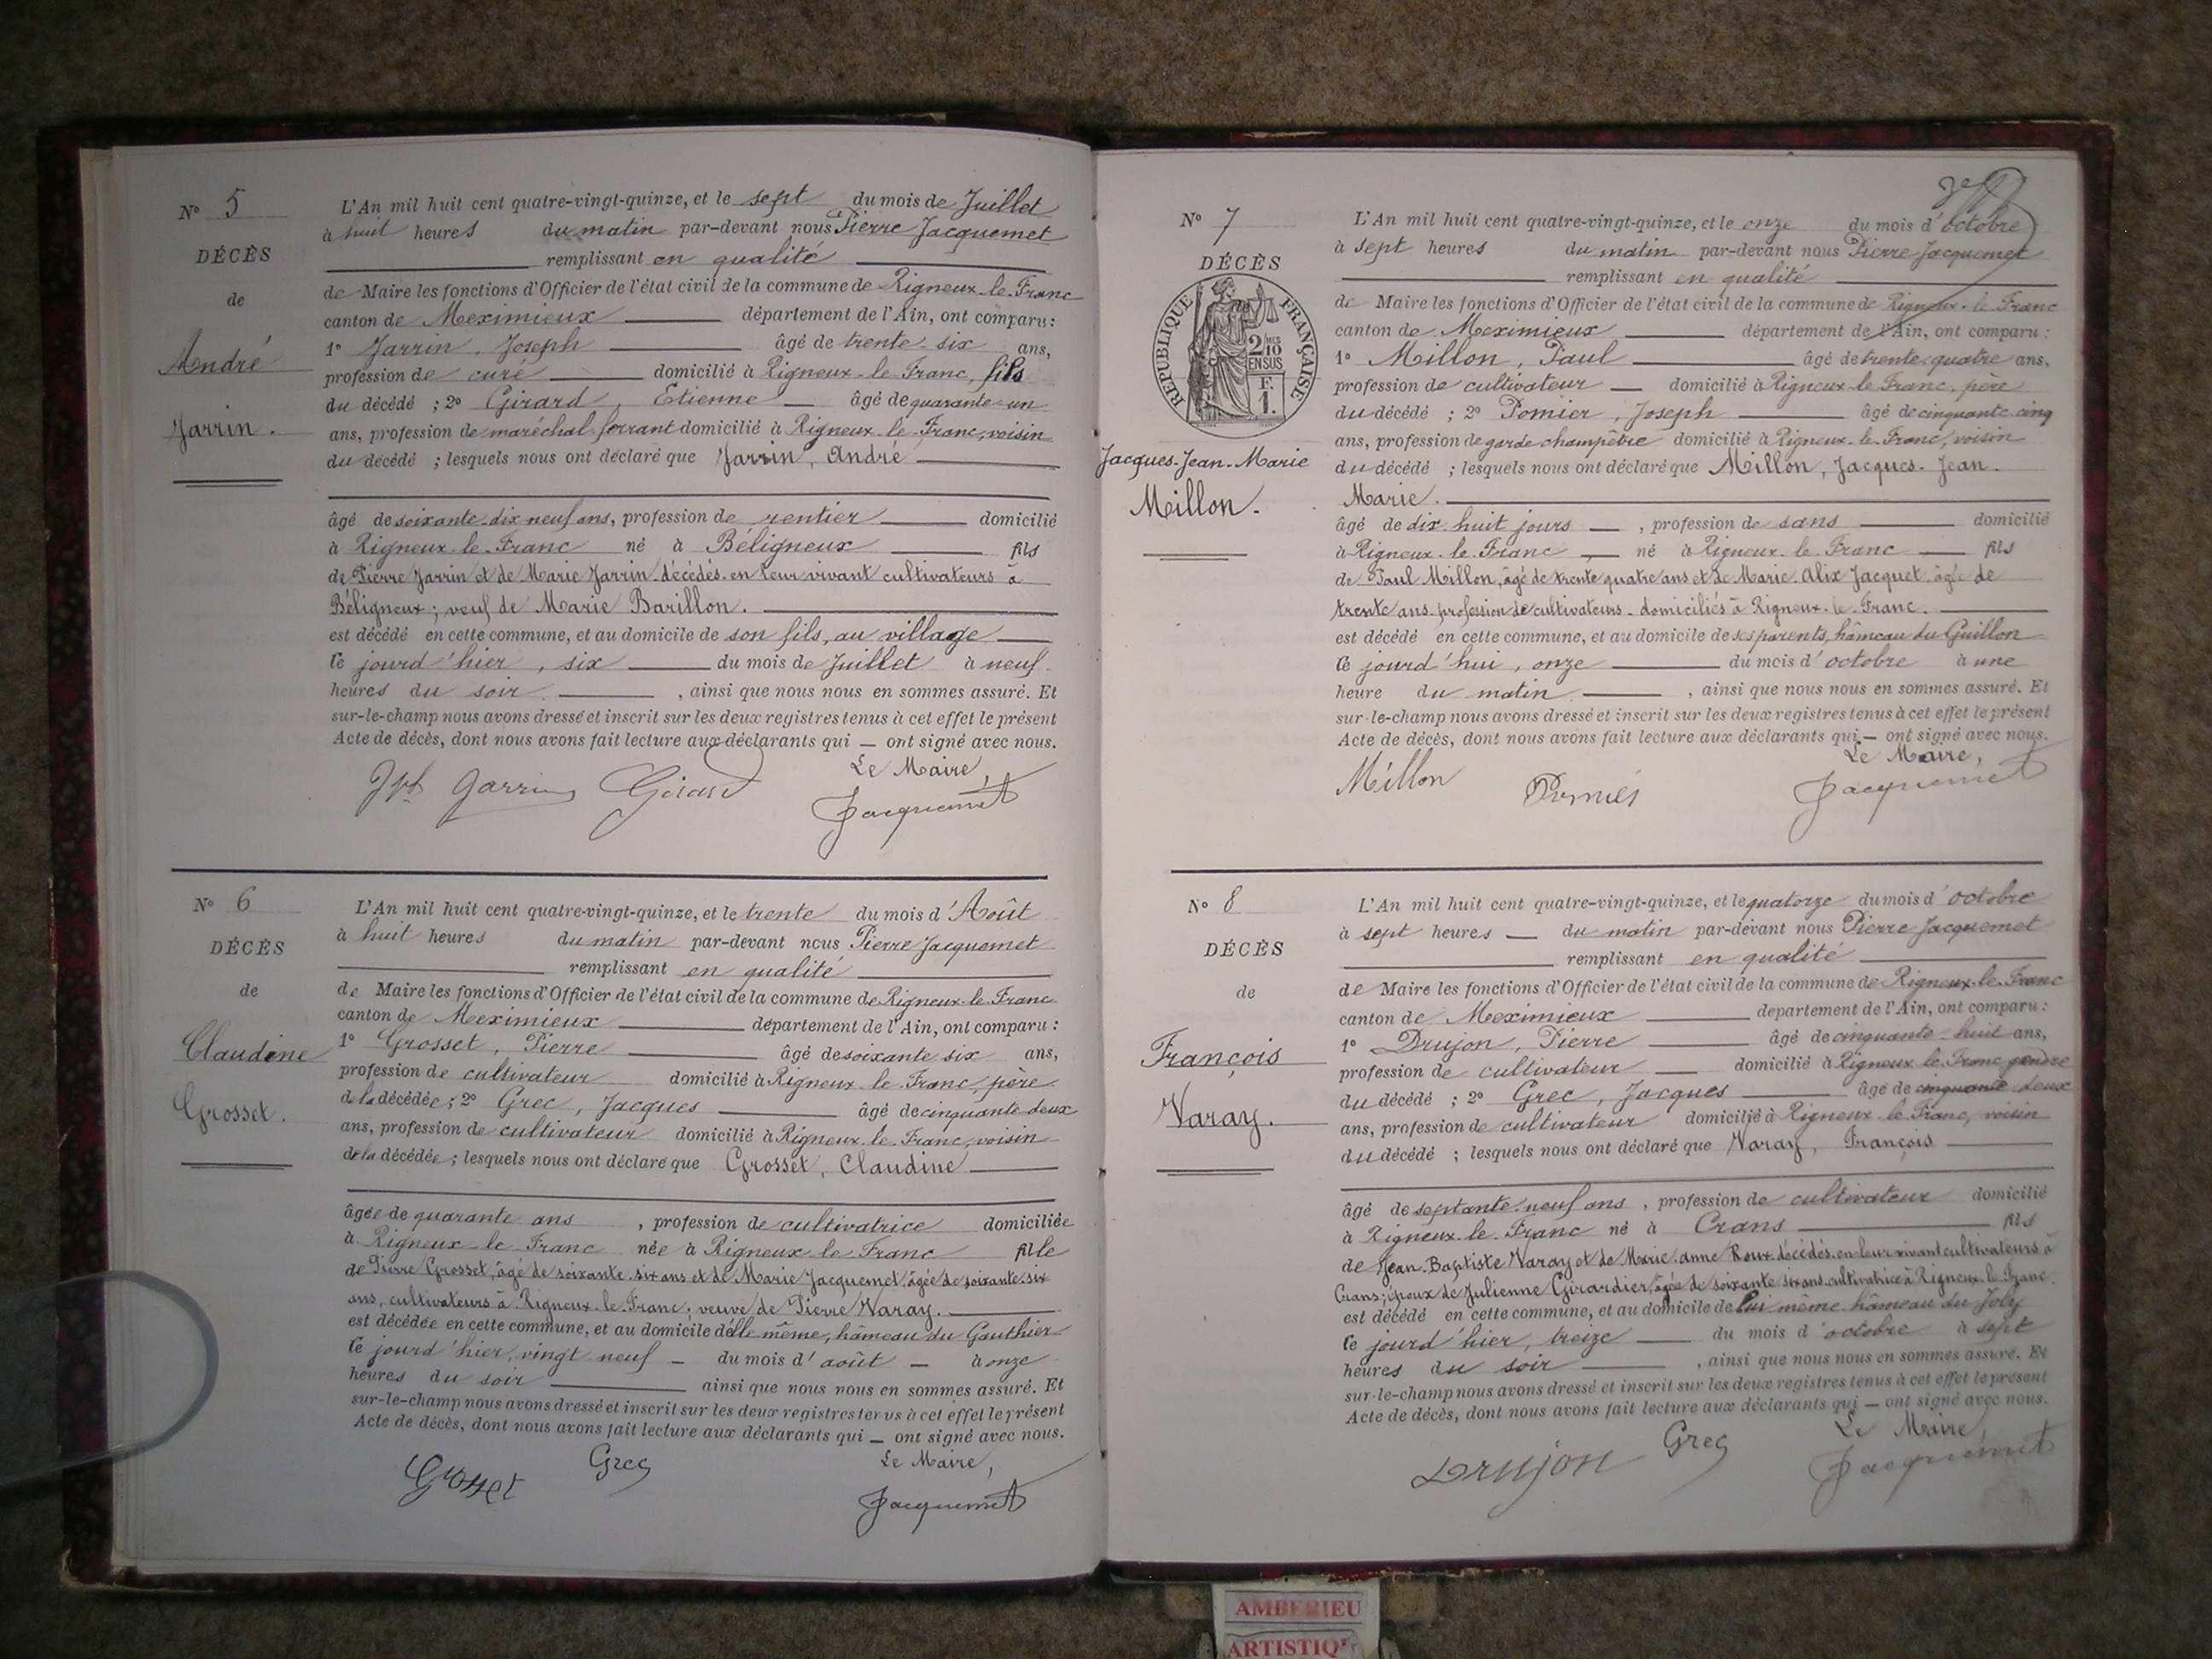 N° 5
DÉCÈS
de
André
Jarrin.
L'An mil huit cent quatre-vingt-quinze, et le sept du mois de Juillet
à huit heures du matin par-devant nous Pierre Jacquemet
remplissant en qualité
de Maire les fonctions d'Officier de l'état civil de la commune de Rigneux-le-Franc
canton de Meximieux département de l'Ain, ont comparu:
1° Jarrin, Joseph âgé de trente-six ans,
profession de curé domicilié à Rigneux-le-Franc, fils
du décédé ; 2° Girard, Etienne âgé de quarante-un
ans, profession de maréchal-ferrant domicilié à Rigneux-le-Franc, voisin
du décédé ; lesquels nous ont déclaré que Jarrin, André
âgé de soixante-dix neuf ans, profession de rentier domicilié
à Rigneux-le-Franc né à Béligneux fils
de Pierre Jarrin et de Marie Jarrin décédés en leur vivant cultivateurs à
Béligneux ; veuf de Marie Barillon.
est décédé en cette commune, et au domicile de son fils, au village
le jourd'hier, six du mois de Juillet à neuf
heures du soir , ainsi que nous nous en sommes assuré. Et
sur-le-champ nous avons dressé et inscrit sur les deux registres tenus à cet effet le présent
Acte de décès, dont nous avons fait lecture aux déclarants qui — ont signé avec nous.
Le Maire,
Jph Jarrin Girard Jacquemet
N° 6
DÉCÈS
de
Claudine
Grosset.
L'An mil huit cent quatre-vingt-quinze, et le trente du mois d'Août
à huit heures du matin par-devant nous Pierre Jacquemet
remplissant en qualité
de Maire les fonctions d'Officier de l'état civil de la commune de Rigneux-le-Franc
canton de Meximieux département de l'Ain, ont comparu :
1° Grosset, Pierre âgé de soixante six ans,
profession de cultivateur domicilié à Rigneux-le-Franc, père
de la décédée ; 2° Grec, Jacques âgé de cinquante deux
ans, profession de cultivateur domicilié à Rigneux-le-Franc, voisin
de la décédée ; lesquels nous ont déclaré que Grosset, Claudine
âgée de quarante ans , profession de cultivatrice domiciliée
à Rigneux-le-Franc née à Rigneux le Franc fille
de Pierre Grosset, âgé de soixante-six ans et de Marie Jacquemet, âgée de soixante-six
ans, cultivateurs à Rigneux-le-Franc ; veuve de Pierre Varay.
est décédée en cette commune, et au domicile d'elle même, hâmeau du Gauthier
le jourd'hier, vingt neuf — du mois d'août — à onze
heures du soir ainsi que nous nous en sommes assuré. Et
sur-le-champ nous avons dressé et inscrit sur les deux registres tenus à cet effet le présent
Acte de décès, dont nous avons fait lecture aux déclarants qui — ont signé avec nous.
Le Maire,
Grosset Grec Jacquemet
N° 7
DÉCÈS
RÉPUBLIQUE FRANÇAISE
2 MES
10
EN SUS
F.
1.
Jacques-Jean-Marie
Millon.
L'An mil huit cent quatre-vingt-quinze, et le onze du mois d'octobre
à sept heures du matin par-devant nous Pierre Jacquemet
remplissant en qualité
de Maire les fonctions d'Officier de l'état civil de la commune de Rigneux-le-Franc
canton de Meximieux département de l'Ain, ont comparu :
1° Millon, Paul âgé de trente-quatre ans,
profession de cultivateur — domicilié à Rigneux-le-Franc, père
du décédé ; 2° Pomier, Joseph âgé de cinquante-cinq
ans, profession de garde champêtre domicilié à Rigneux-le-Franc, voisin
du décédé ; lesquels nous ont déclaré que Millon, Jacques-Jean-
Marie.
âgé de dix-huit jours — , profession de sans domicilié
à Rigneux-le-Franc — né à Rigneux-le-Franc — fils
de Paul Millon, âgé de trente quatre ans et de Marie Alix Jacquet, âgée de
trente ans, profession de cultivateurs domiciliés à Rigneux-le-Franc.
est décédé en cette commune, et au domicile de ses parents, hâmeau du Guillon
le jourd'hui, onze du mois d'octobre à une
heure du matin , ainsi que nous nous en sommes assuré. Et
sur-le-champ nous avons dressé et inscrit sur les deux registres tenus à cet effet le présent
Acte de décès, dont nous avons fait lecture aux déclarants qui — ont signé avec nous.
Le Maire,
Millon Pomier Jacquemet
N° 8
DÉCÈS
de
François
Varay.
L'An mil huit cent quatre-vingt-quinze, et le quatorze du mois d'octobre
à sept heures — du matin par-devant nous Pierre Jacquemet
remplissant en qualité
de Maire les fonctions d'Officier de l'état civil de la commune de Rigneux-le-Franc
canton de Meximieux département de l'Ain, ont comparu :
1° Drujon, Pierre âgé de cinquante-huit ans,
profession de cultivateur — domicilié à Rigneux le Franc gendre
du décédé ; 2° Grec, Jacques âgé de cinquante deux
ans, profession de cultivateur domicilié à Rigneux le Franc, voisin
du décédé ; lesquels nous ont déclaré que Varay, François
âgé de septante-neuf ans , profession de cultivateur domicilié
à Rigneux-le-Franc né à Crans fils
de Jean-Baptiste Varay et de Marie-anne Roux décédés en leur vivant cultivateurs à
Crans ; époux de Julienne Girardier, âgée de soixante-six ans cultivatrice à Rigneux-le-Franc.
est décédé en cette commune, et au domicile de lui même hâmeau du Joly
le jourd'hier, treize du mois d'octobre à sept
heures du soir , ainsi que nous nous en sommes assuré. Et
sur-le-champ nous avons dressé et inscrit sur les deux registres tenus à cet effet le présent
Acte de décès, dont nous avons fait lecture aux déclarants qui — ont signé avec nous.
Le Maire
Drujon Grec Jacquemet
AMBERIEU
ARTISTIQ